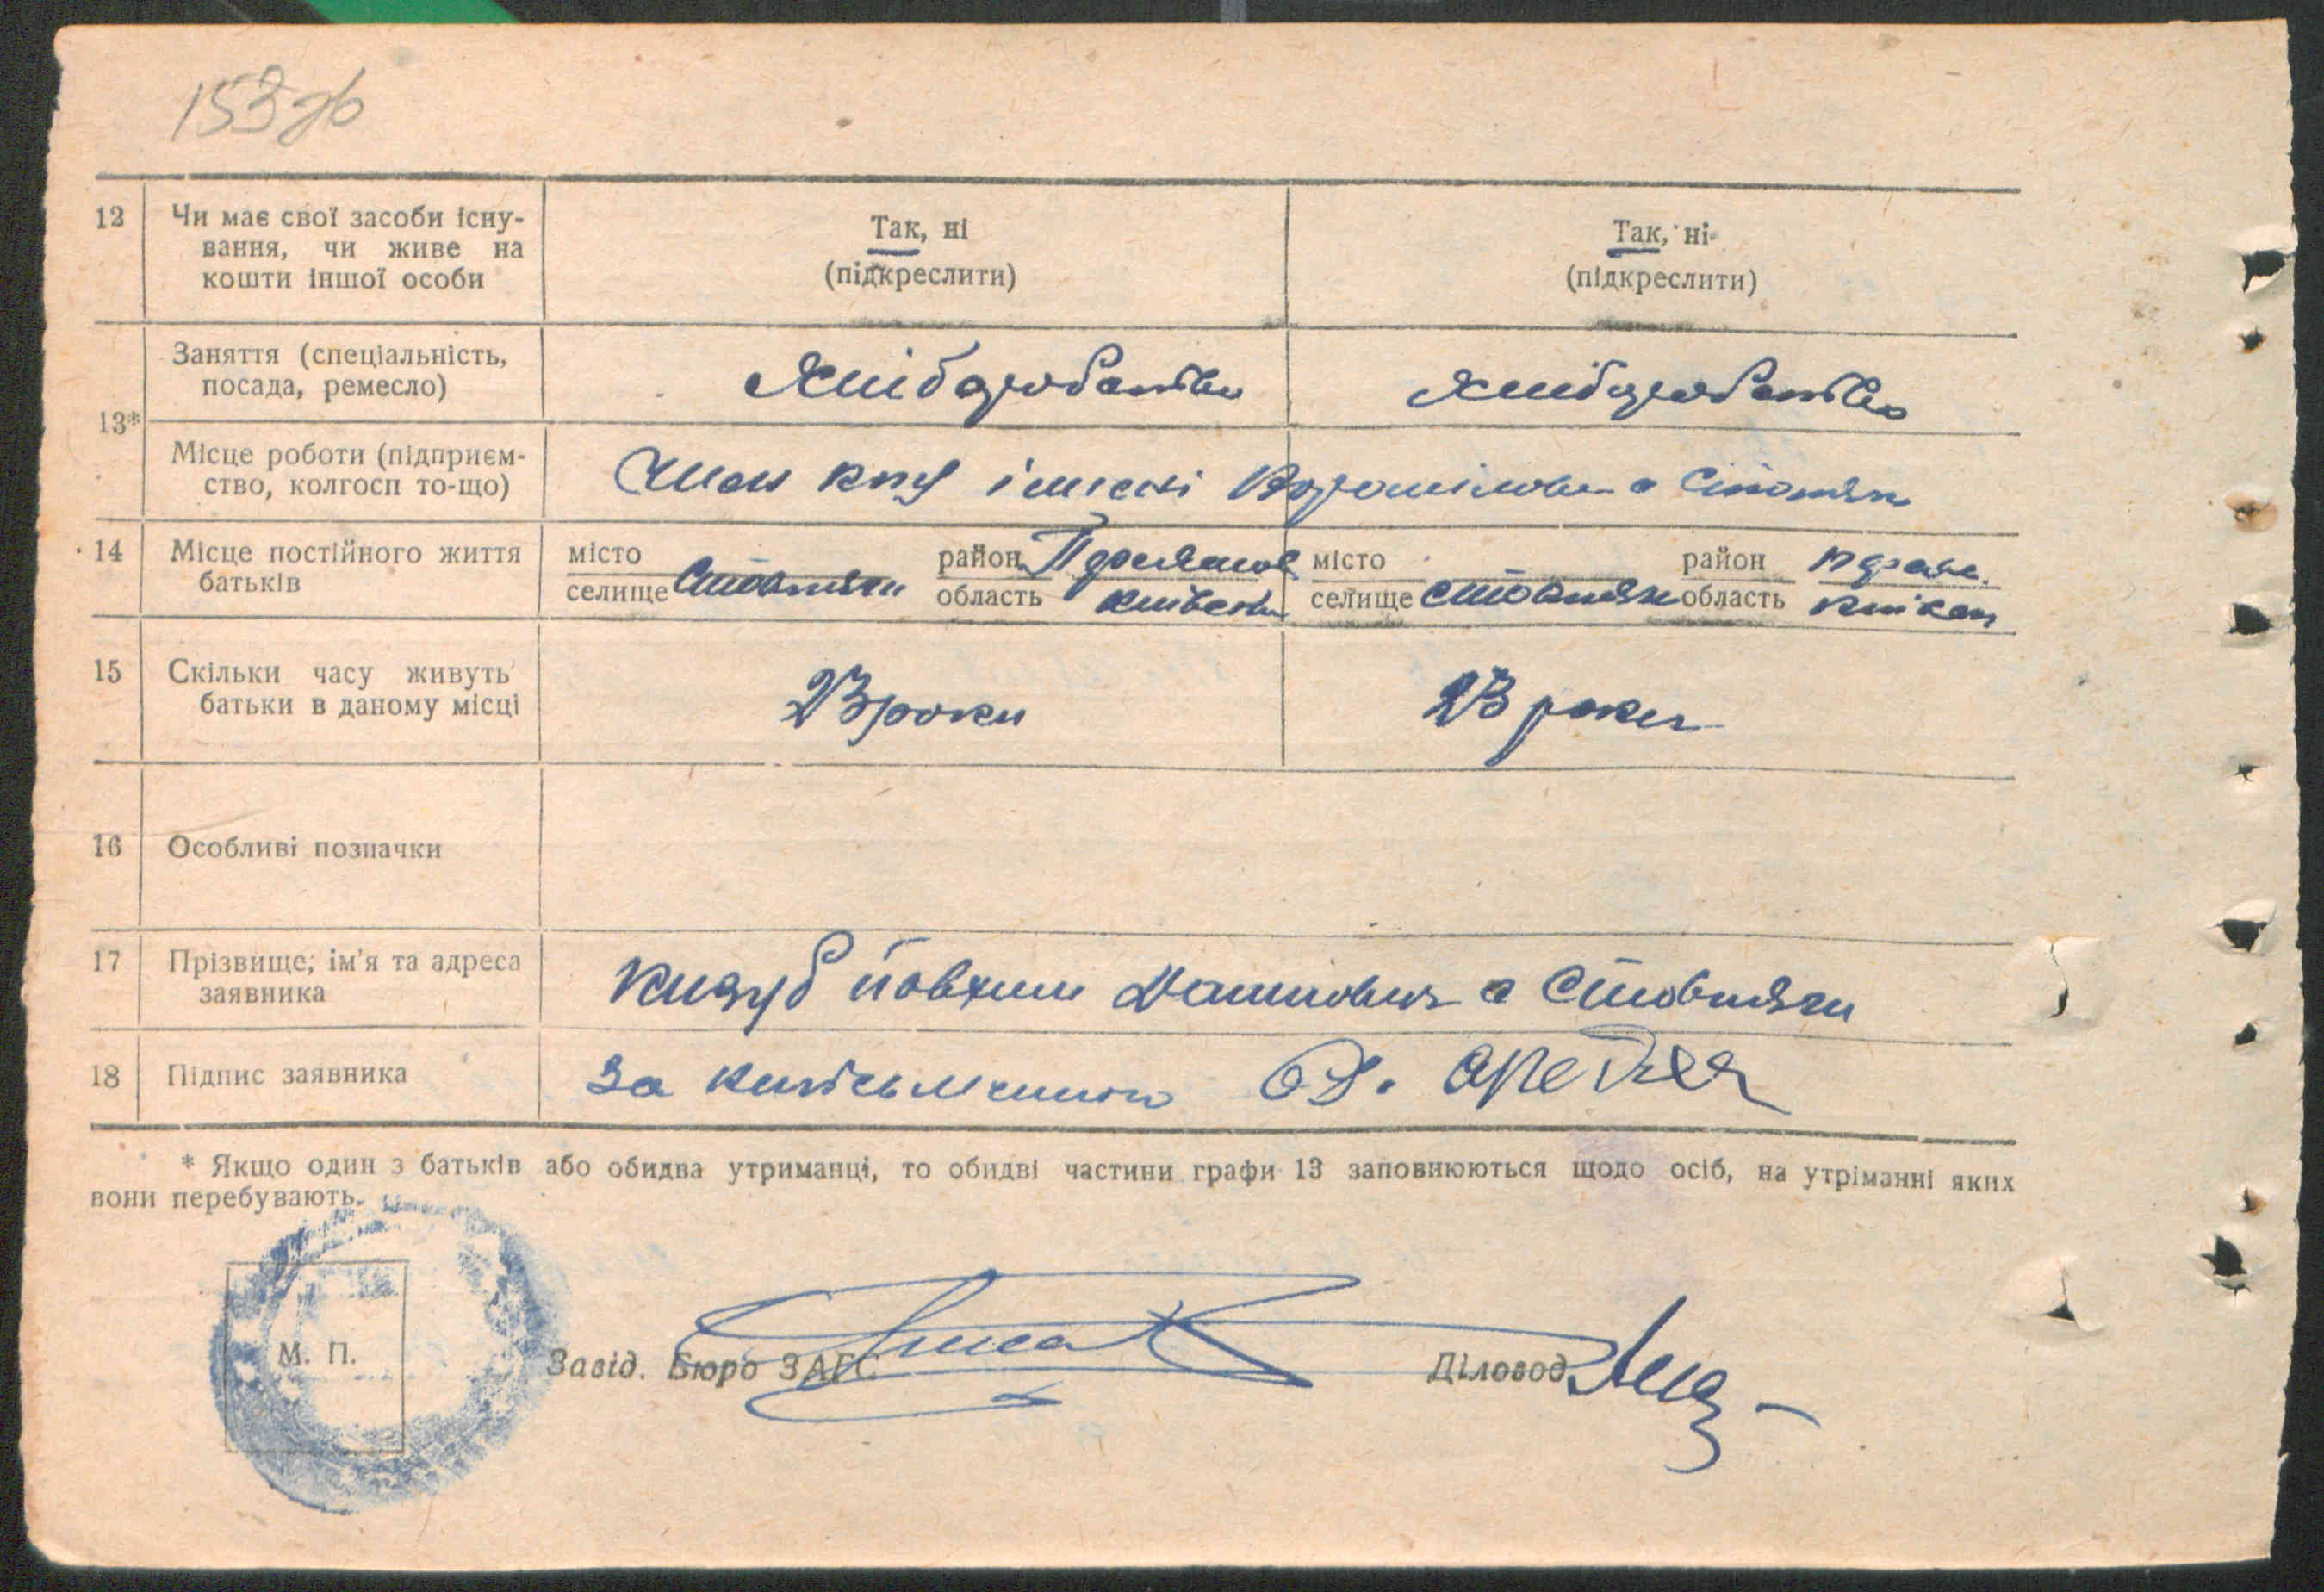 153 зв
12 Чи має свої засоби існу-
вання, чи живе на
кошти іншої особи
Так, ні
(підкреслити)
Так, ні
(підкреслити)
13*
Заняття (спеціальність,
посада, ремесло)
хліборобство
хліборобство
Місце роботи (підприєм-
ство, колгосп то-що)
Член імені Ворошілова с Стовпяги
14 Місце постійного життя
батьків
місто
селище Стовпяги
район
область Київська
місто
селище Стовпяги
район
область
15 Скільки часу живуть
батьки в даному місці
23 роки
23 роки
16 Особливі позначки
17 Прізвище, ім'я та адреса
заявника
Йовхим Данилович с Стовпяги
18 Підпис заявника
За
* Якщо один з батьків або обидва утриманці, то обидві частини графи 13 заповнюються щодо осіб, на утріманні яких
вони перебувають.
М. П.
Завід. Бюро ЗАГС
Діловод